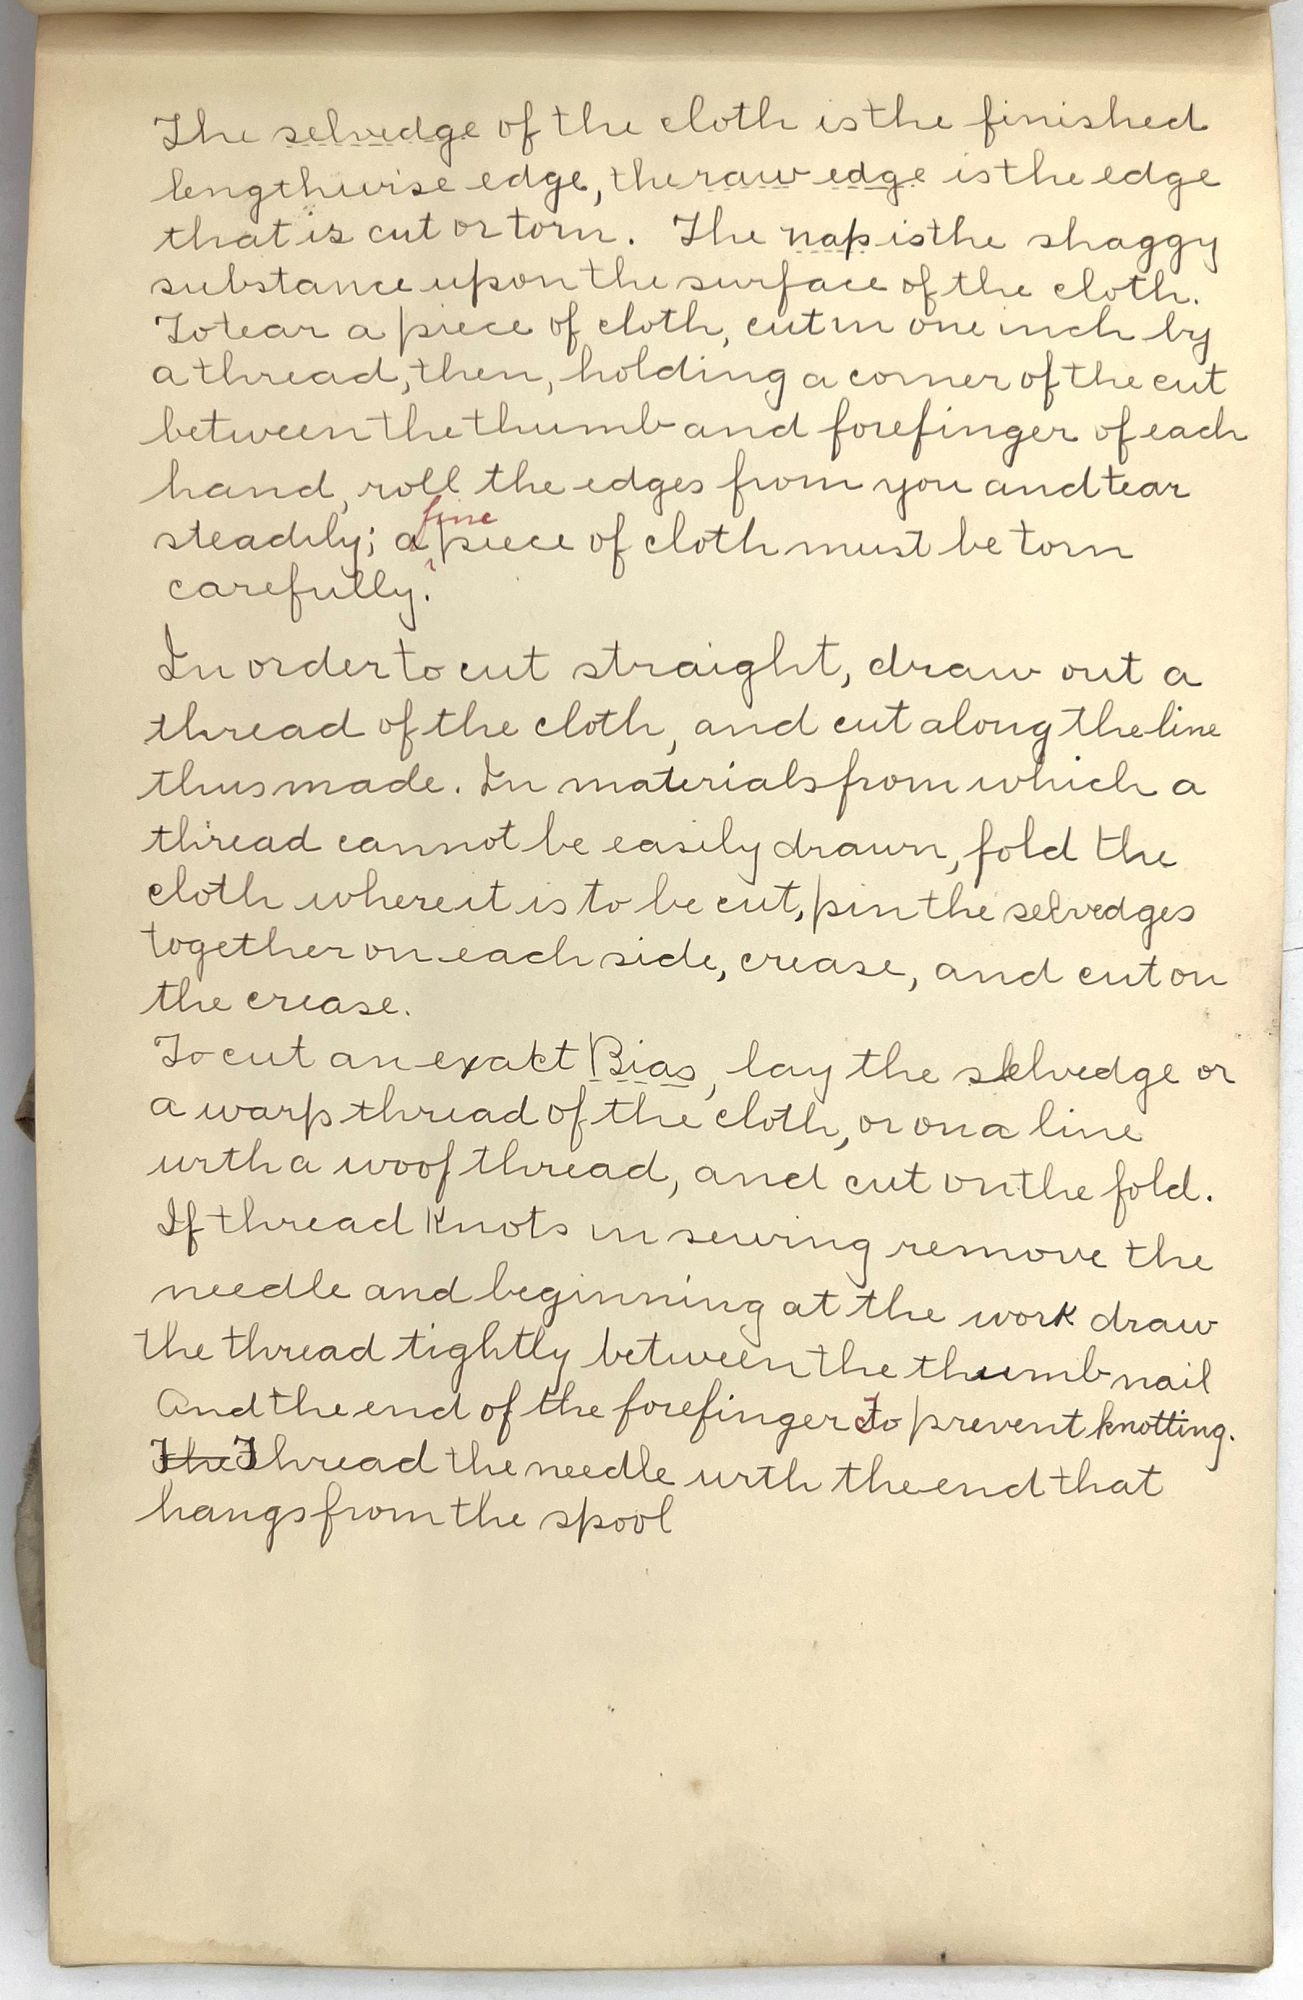 The selvedge of the cloth is the finished
lengthwise edge, the raw edge is the edge
that is cut or torn. The nap is the shaggy
substance upon the surface of the cloth.
To tear a piece of cloth, cut in one inch by
a thread, then, holding a corner of the cut
between the thumb and forefinger of each
hand, roll the edges from you and tear
steadily; a fine piece of cloth must be torn
carefully.
In order to cut straight, draw out a
thread of the cloth, and cut along the line
thus made. In materials from which a
thread cannot be easily drawn, fold the
cloth where it is to be cut, pin the selvedges
together on each side, crease, and cut on
the crease.
To cut an exact Bias, lay the selvedge or
a warp thread of the cloth, or on a line
with a woof thread, and cut on the fold.
If thread knots in sewing remove the
needle and beginning at the work draw
the thread tightly between the thumb nail
And the end of the forefinger To prevent knotting.
The Thread the needle with the end that
hangs from the spool